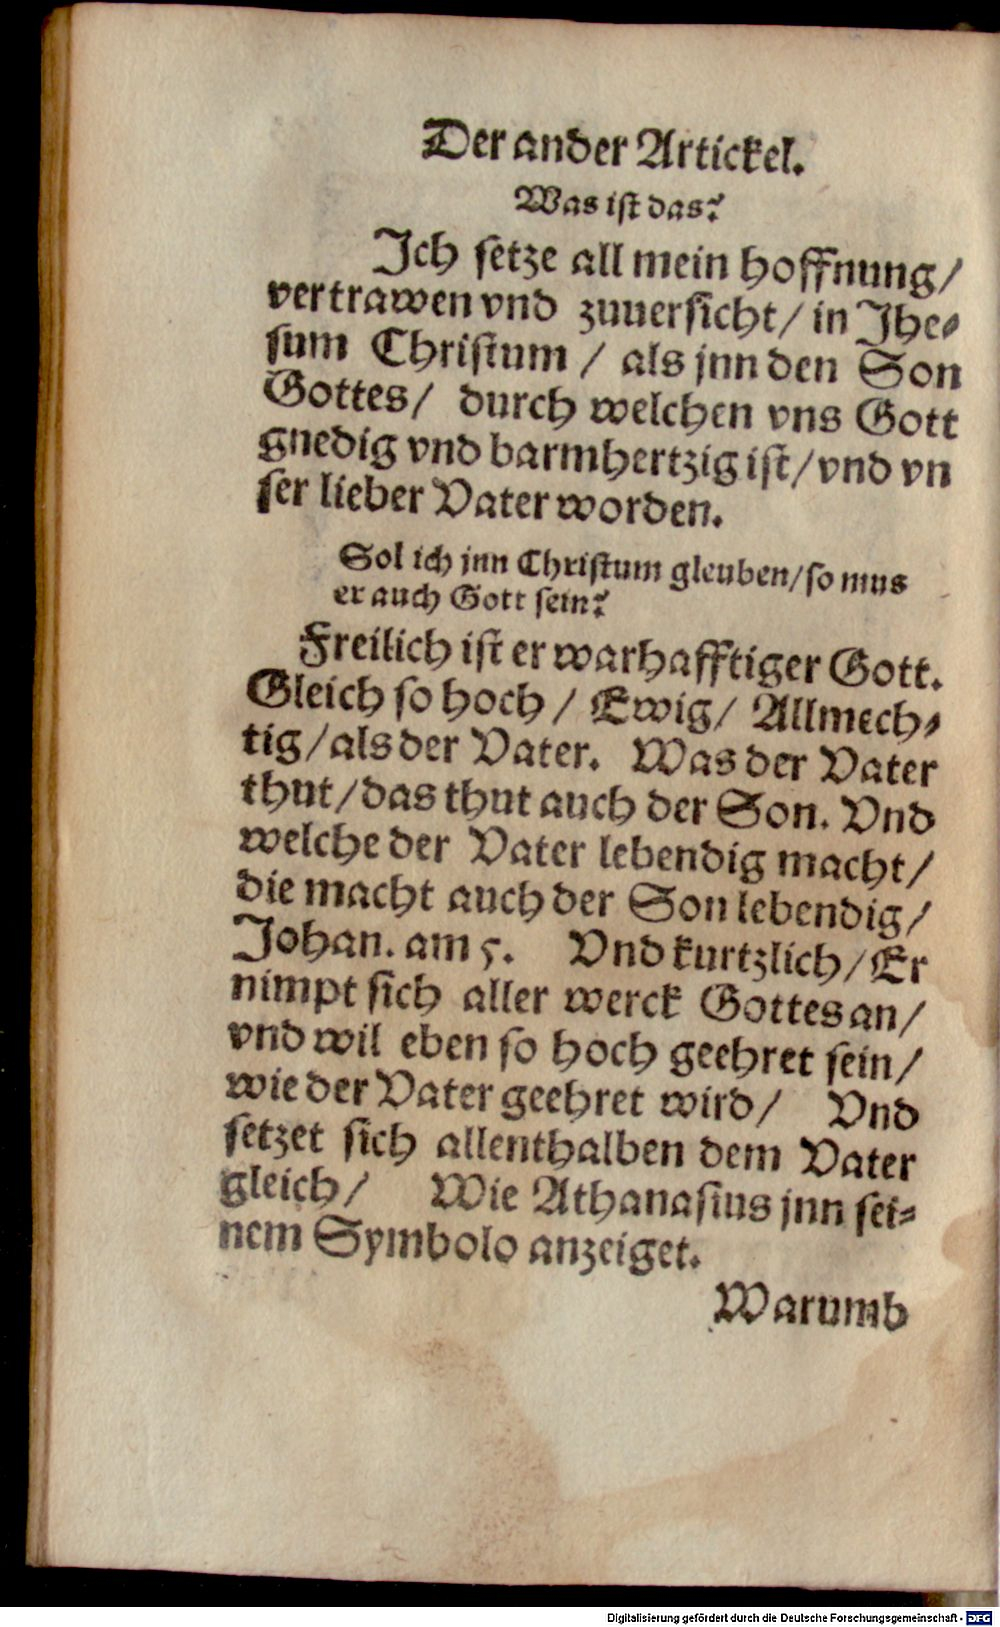 Der ander Artickel.
Was ist das?
Ich setze all mein hoffnung/
vertrawen vnd zuuersicht/ in Jhe-
sum Christum / als jnn den Son
Gottes/ durch welchen vns Gott
gnedig vnd barmhertzig ist/ vnd vn
ser lieber Vater worden.
Sol ich jnn Christum gleuben/ so mus
er auch Gott sein?
Freilich ist er warhafftiger Gott.
Gleich so hoch / Ewig/ Allmech-
tig/ als der Vater. Was der Vater
thut/ das thut auch der Son. Vnd
welche der Vater lebendig macht/
die macht auch der Son lebendig/
Johan. am 5. Vnd kurtzlich/ Er
nimpt sich aller werck Gottes an/
vnd wil eben so hoch geehret sein/
wie der Vater geehret wird/ Vnd
setzet sich allenthalben dem Vater
gleich/ Wie Athanasius jnn sei-
nem Symbolo anzeiget.
Warumb
Digitalisierung gefördert durch die Deutsche Forschungsgemeinschaft - DFG